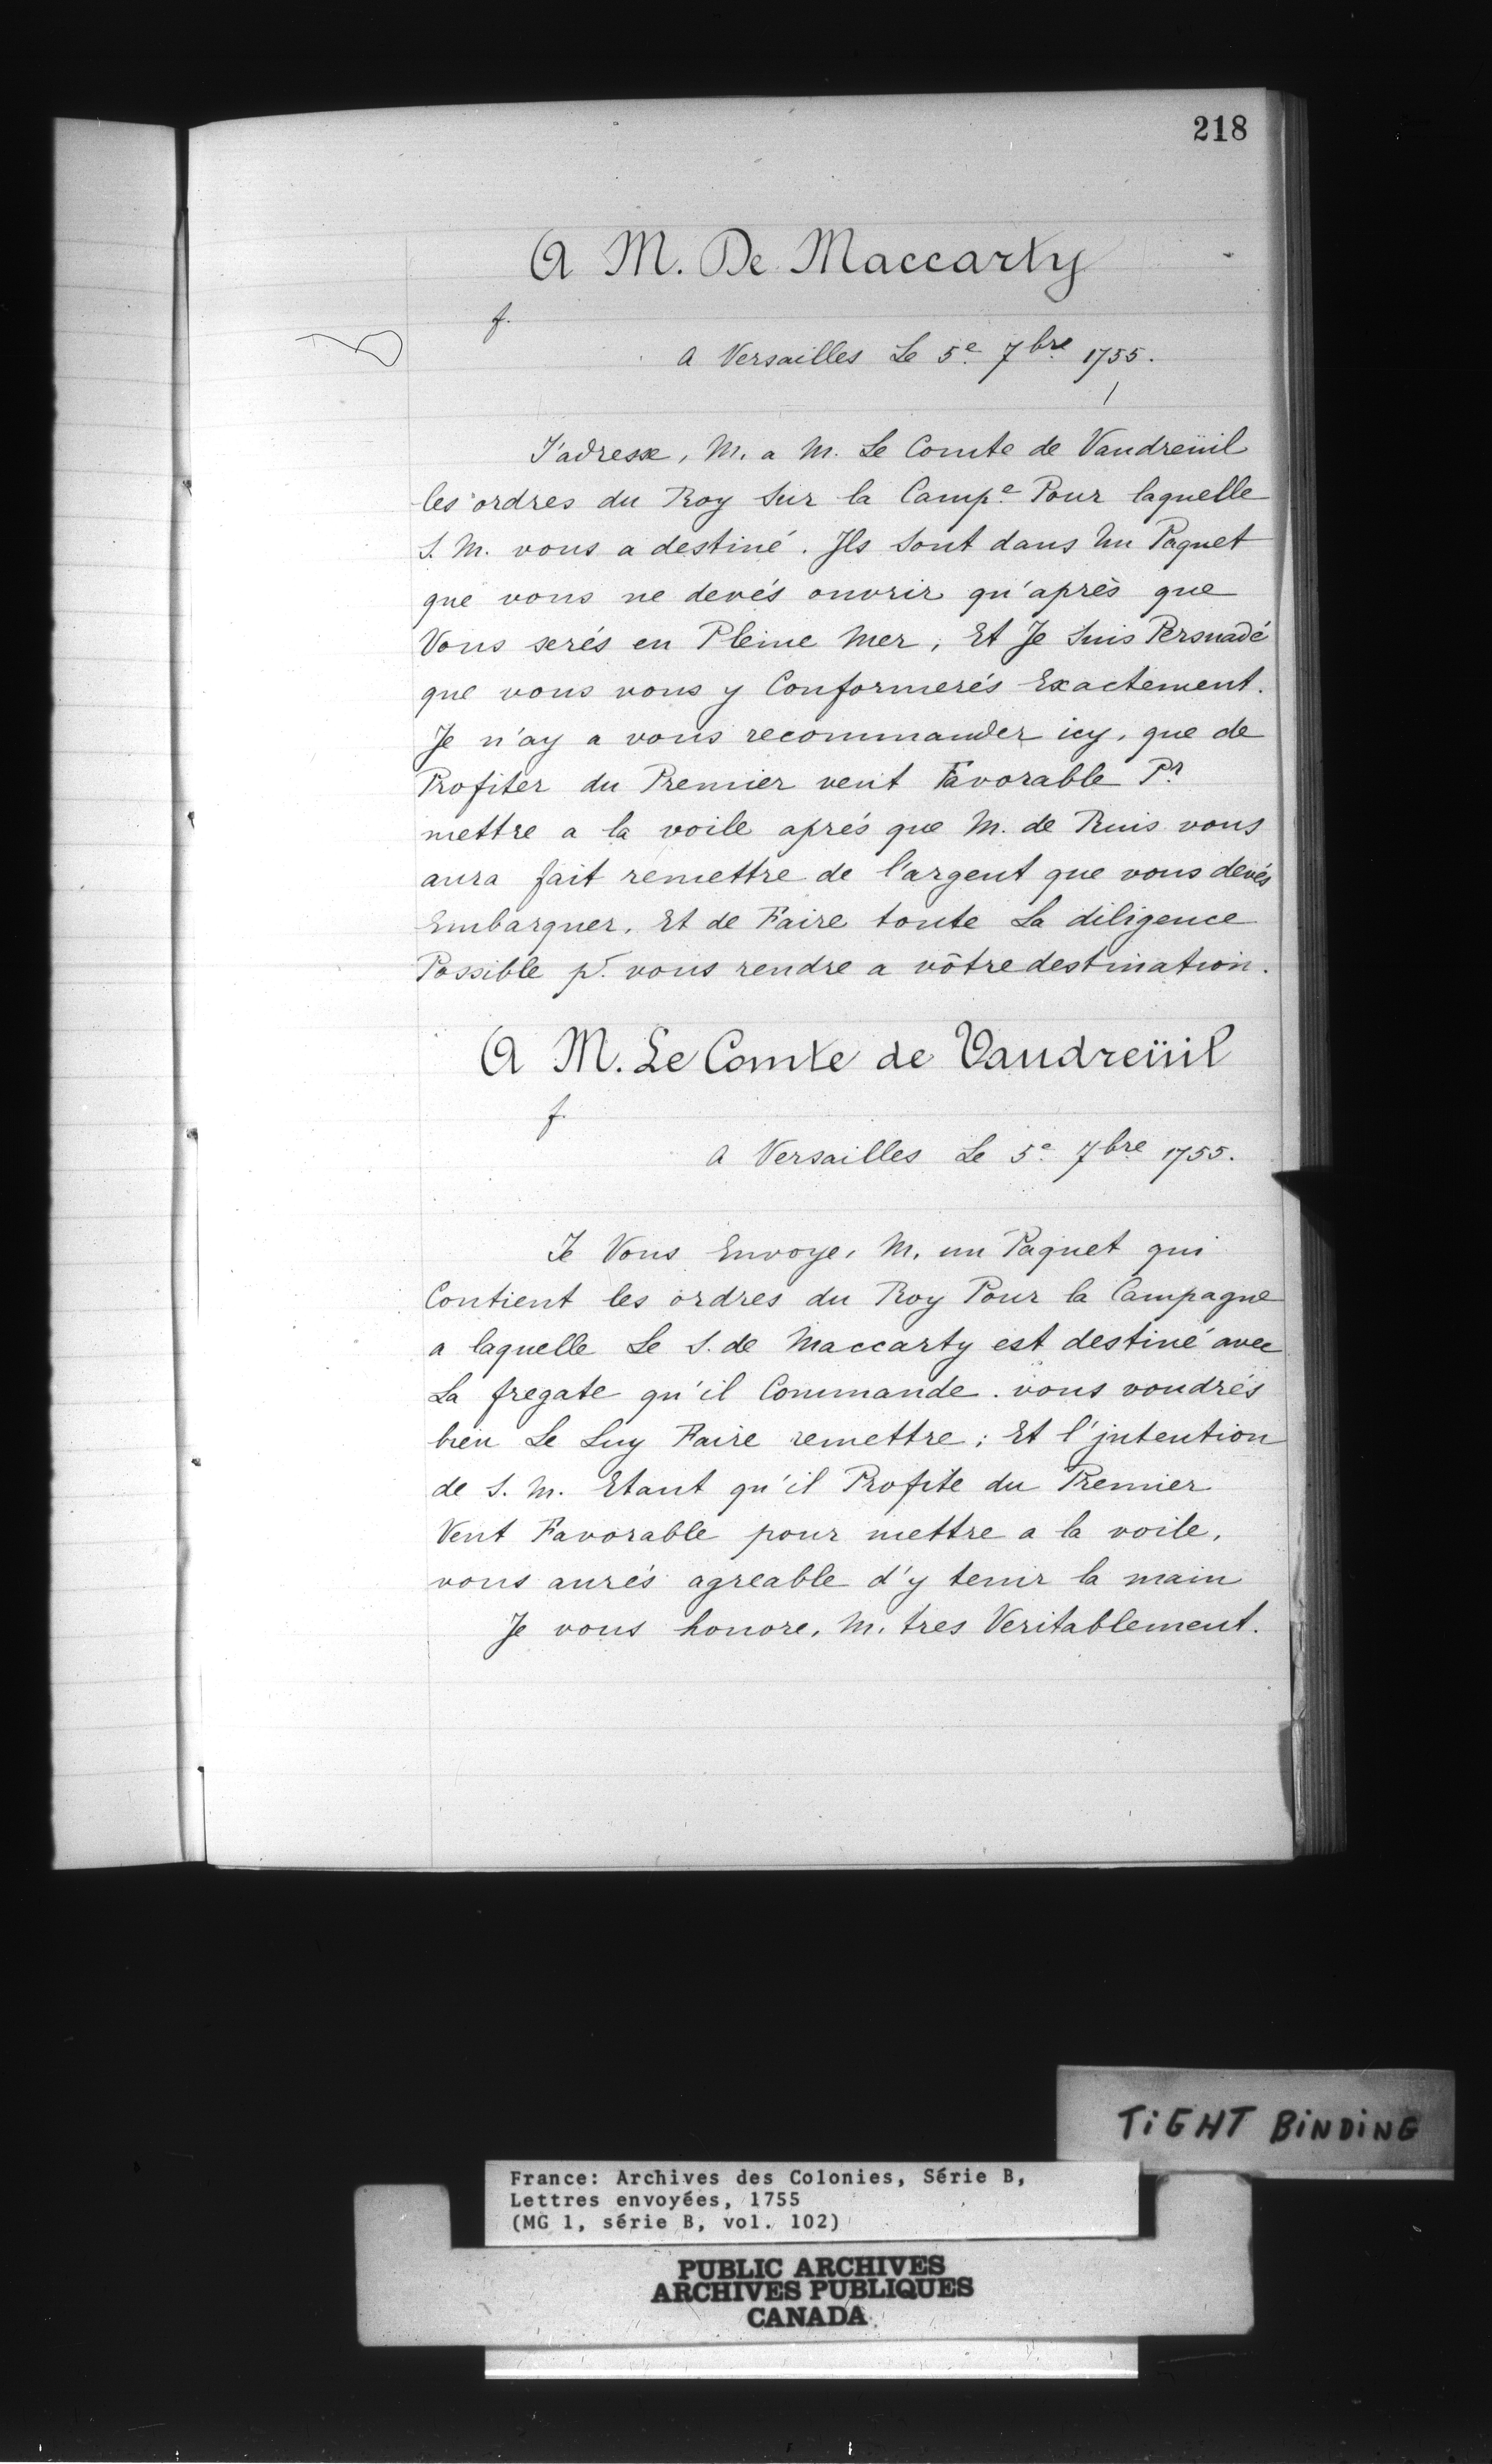 218
A M. De Maccarty
f.
A Versailles Le 5e 7bre 1755.
J'adresse, M. a M. Le Comte de Vaudreüil
les ordres du Roy Sur la Campe Pour laquelle
S. M. vous a destiné. Ils Sont dans Un Paquet
que vous ne devés ouvrir qu'après que
Vous serés en Pleine Mer, Et Je Suis Persuadé
que vous vous y Conformerés Exactement.
Je n'ay a vous recommander icy, que de
Profiter du Premier vent Favorable Pr
mettre a la voile aprés que M. de Ruis vous
aura fait remettre de l'argent que vous devés
Embarquer, Et de Faire toute La diligence
Possible pr. vous rendre a vôtre destination.
A M. Le Comte de Vaudreüil
f.
A Versailles Le 5e 7bre 1755.
Je Vous Envoye, M. un Paquet qui
Contient les ordres du Roy Pour la Campagne
a laquelle Le S. de Maccarty est destiné avec
La fregate qu'il Commande. vous voudrés
bien Le Luy Faire remettre; Et l'jntention
de S. M. Etant qu'il Profite du Premier
Vent Favorable pour mettre a la voile,
vous aurés agreable d'y tenir la main
Je vous honore, M. tres Veritablement.
TIGHT BINDING
France: Archives des Colonies, Série B,
Lettres envoyées, 1755
(MG 1, série B, vol. 102)
PUBLIC ARCHIVES
ARCHIVES PUBLIQUES
CANADA